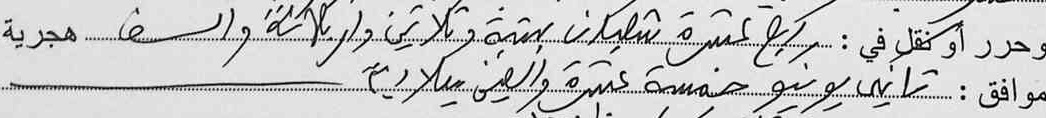 وحرر أو كنقل في : رابع عشرة شعبان ستة وثلاثين وأربعمائة والـــف هجرية
موافق : ثاني يونيو خمسة عشرة والفين ميلادية